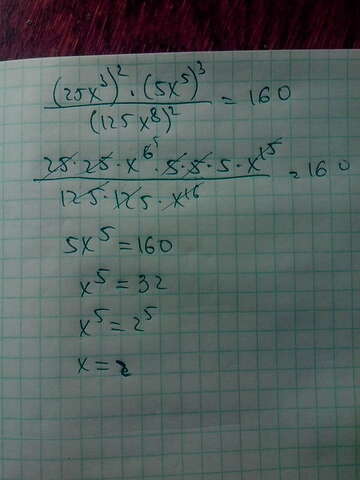 (25x³)² · (5x⁵)³ / (125x⁸)² = 160
25 · 25 · x⁶ ⁵ · 5 · 5 · 5 · x¹⁵ / 125 · 125 · x¹⁶ = 160
5x⁵ = 160
x⁵ = 32
x⁵ = 2⁵
x = 2